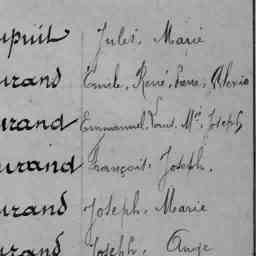 upuit Jules. Marie
urand Émile, René, Pierre, Alexis
urand Emmanuel, Louis, Mie, Joseph
urand François, Joseph.
urand Joseph, Marie
urand Joseph, Ange